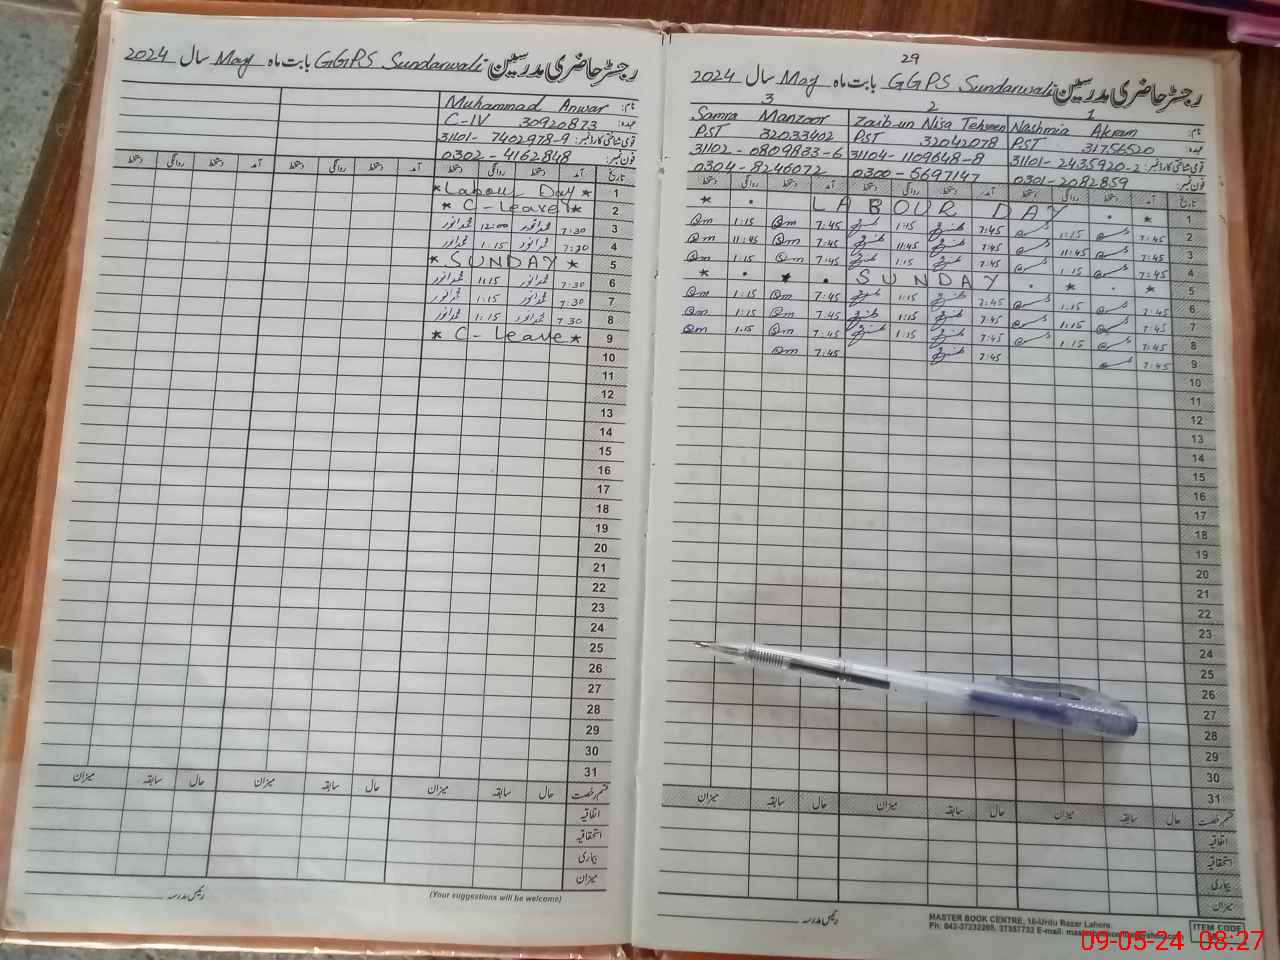 رجسٹر حاضری مدرسین GGPS Sundarwali بابت ماہ May سال 2024
Muhammad Anwar
C-IV 30920873
قومی شناختی کارڈ نمبر: 31101-7402978-9
فون نمبر: 0302-4162848
تاریخ آمد دستخط روانگی دستخط آمد دستخط روانگی دستخط آمد دستخط روانگی دستخط
1 * Labour Day *
2 * C-Leave *
3 7:30 محمد انور 12:00 محمد انور
4 7:30 محمد انور 1:15 محمد انور
5 * SUNDAY *
6 7:30 محمد انور 1:15 محمد انور
7 7:30 محمد انور 1:15 محمد انور
8 7:30 محمد انور 1:15 محمد انور
9 * C-Leave *
10
11
12
13
14
15
16
17
18
19
20
21
22
23
24
25
26
27
28
29
30
31
قسم رخصت حال سابقہ میزان حال سابقہ میزان حال سابقہ میزان
اتفاقیہ
استحقاقیہ
بیماری
میزان
رئیس مدرسہ
(Your suggestions will be welcome)
29
رجسٹر حاضری مدرسین GGPS Sundarwali بابت ماہ May سال 2024
1 2 3
نام: Nashmia Akram Zaib-un Nisa Tehseen Samra Manzoor
عہدہ: PST 31756520 PST 32042078 PST 32033402
قومی شناختی کارڈ نمبر: 31101-2435920-2 31104-1109648-8 31102-0809833-6
فون نمبر: 0301-2082859 0300-5697147 0304-8246072
تاریخ آمد دستخط روانگی دستخط آمد دستخط روانگی دستخط آمد دستخط روانگی دستخط
1 * . LABOUR DAY . *
2 7:45 1:15 7:45 1:45 7:45 Qm 1:15 Qm
3 7:45 11:45 7:45 11:45 7:45 Qm 11:45 Qm
4 7:45 1:15 7:45 1:15 7:45 Qm 1:15 Qm
5 * . * . SUNDAY . * . *
6 7:45 1:15 7:45 1:15 7:45 Qm 1:15 Qm
7 7:45 1:15 7:45 1:15 7:45 Qm 1:15 Qm
8 7:45 1:15 7:45 1:15 7:45 Qm 1:15 Qm
9 7:45 7:45 7:45 Qm
10
11
12
13
14
15
16
17
18
19
20
21
22
23
24
25
26
27
28
29
30
31
قسم رخصت حال سابقہ میزان حال سابقہ میزان حال سابقہ میزان
اتفاقیہ
استحقاقیہ
بیماری
میزان
رئیس مدرسہ
MASTER BOOK CENTRE, 10-Urdu Bazar Lahore.
ITEM CODE
09-05-24 08:27